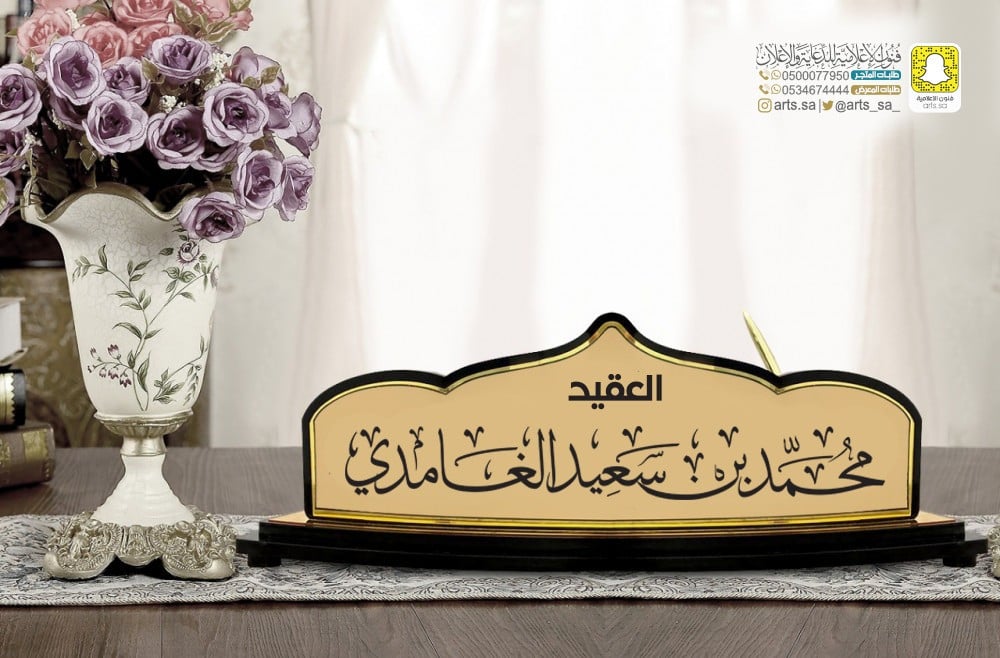 فنون الإعلامية للدعاية والإعلان
طلبات المتجر 0500077950
طلبات المعرض 0534674444
arts.sa | @arts_sa_
فنون الاعلامية
arts.sa
العقيد
محمد بن سعيد الغامدي